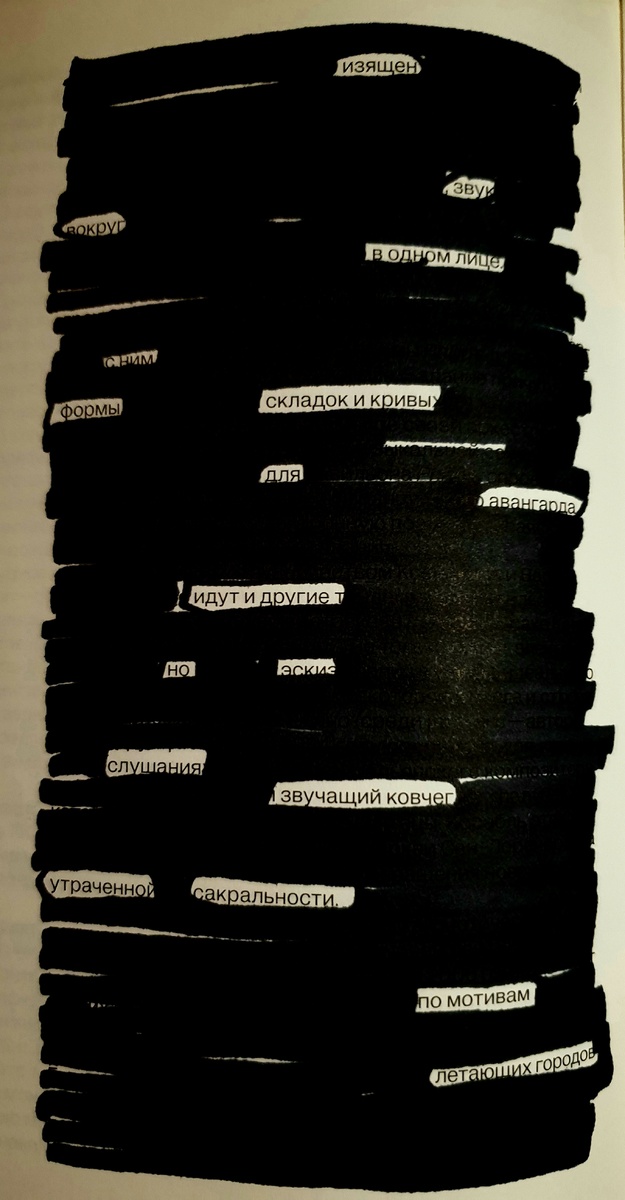 изящен
, звук
вокруг
в одном лице.
с ним
складок и кривых
формы
для
о авангарда
идут и другие т
но эскиз
слушания
звучащий ковчег
утраченной сакральности.
по мотивам
летающих городов